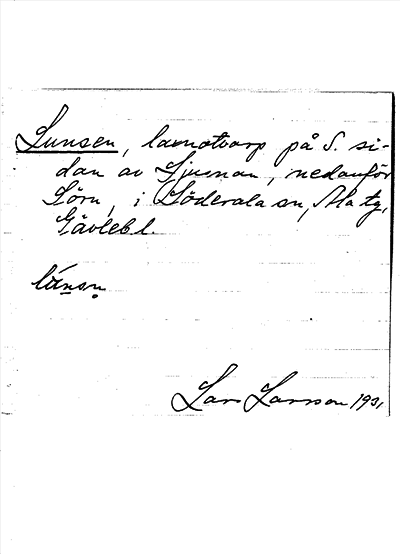 Lunsen, laxnotvarp på S. si-
dan av Ljusnan, nedanför
Sörn, i Söderala sn, Ala tg,
Gävlebl.
lúnsn
Lars Larsson 1931